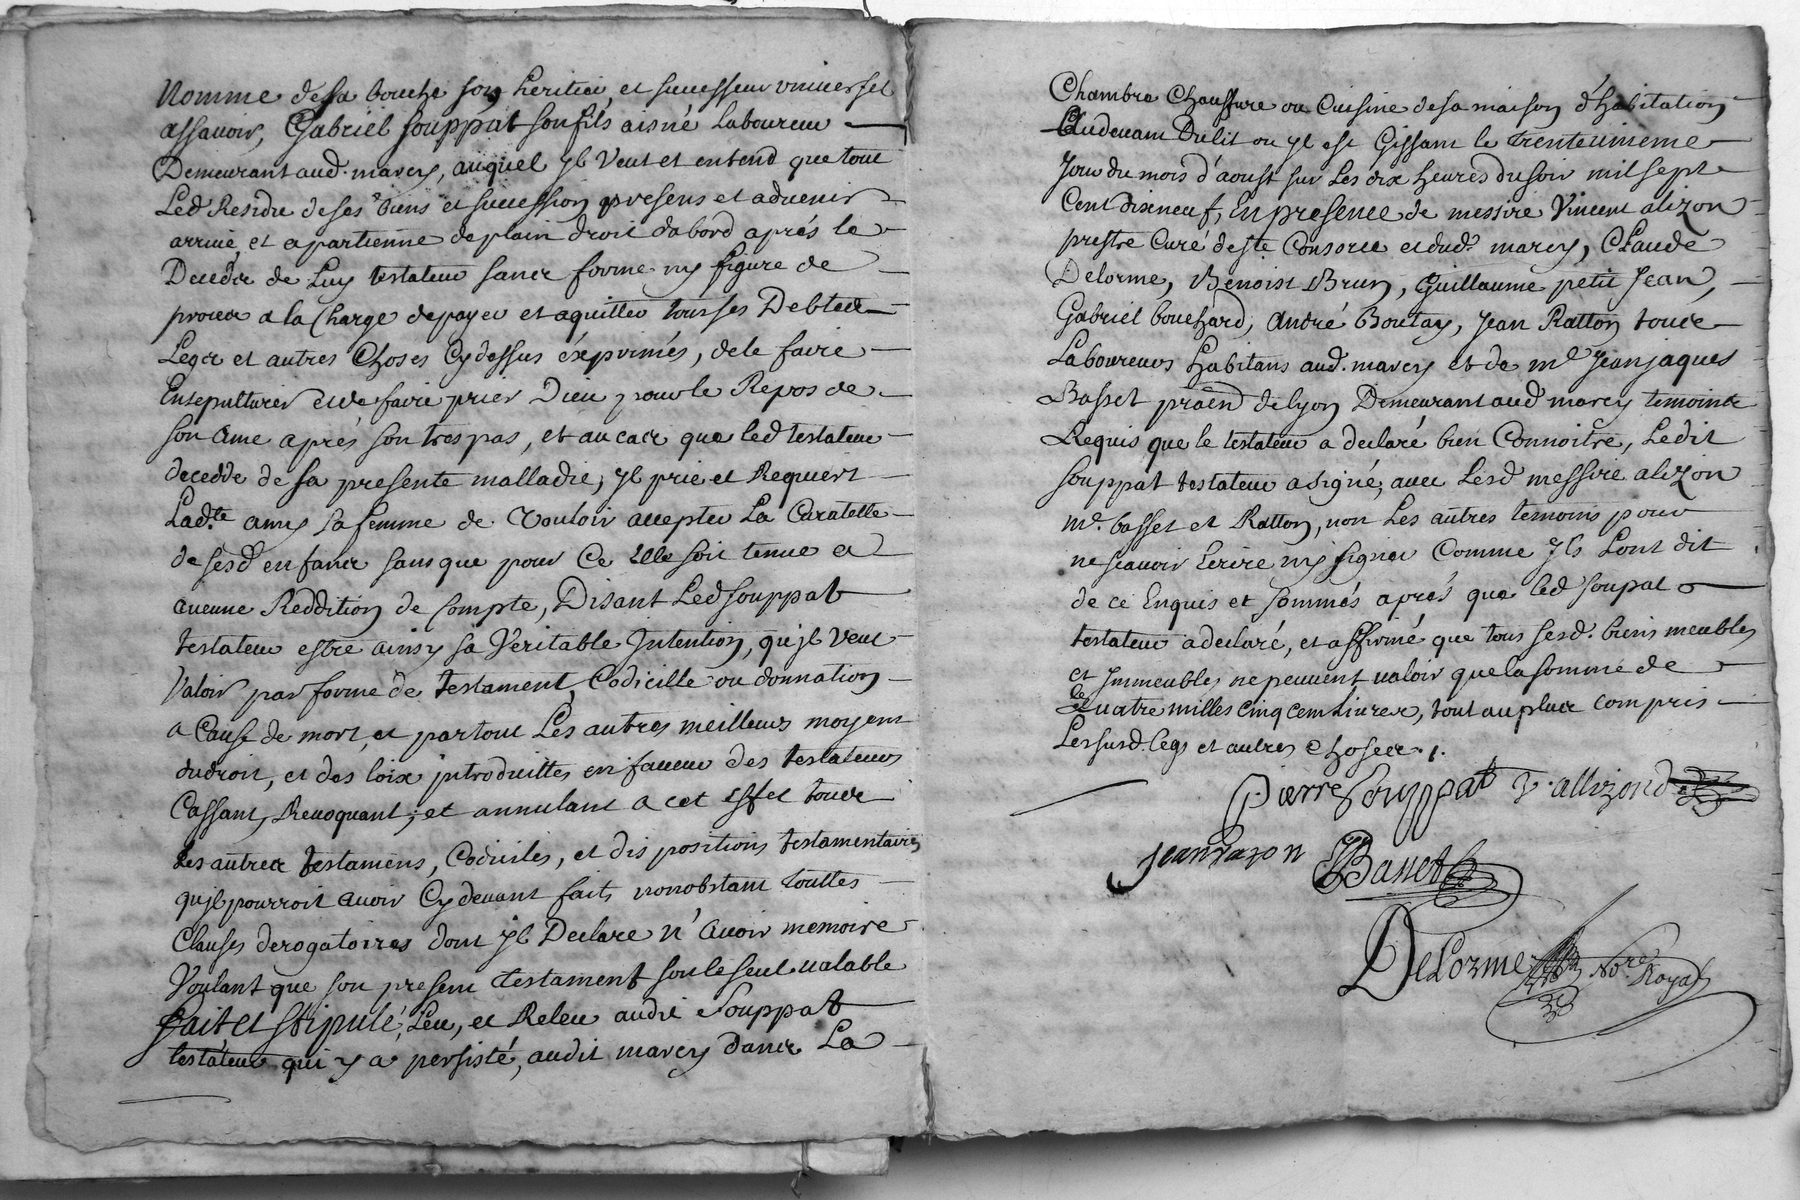 Nomme de sa bouche son heritier et successeur universel
assavoir, Gabriel Souppat son fils aisné Laboureur
Demeurant aud. marcy, auquel Jl Veut et entend que tout
Led Residu de ses biens et succession presens et advenir
arrive et apartienne de plain droit dabord aprés le
Decéds de Luy testateur sans forme ny figure de
proces a la Charge de payer et aquitter tous ses Debtes
Legs et autres Choses Cy dessus éxprimés, de le faire
Ensepulturer et de faire prier Dieu pour le Repos de
son ame aprés son trespas, et au cas que led testateur
decedde de sa presente malladie, Jl prie et Requiert
Lad.te amy sa femme de Vouloir accepter La Curatelle
de sesd enfans sans que pour Ce Elle soit tenue a
aucune Reddition de Compte, Disant Led Souppat
testateur estre ainsy sa Veritable Intention, qu'jl veut
Valoir par forme de testament, Codicille ou donnation
a Cause de mort, et par tout Les autres meilleurs moyens
du droit, et des loix introduittes en faveur des testateurs
Cassant, Revoquant, et annulant a cet effet tous
Les autres testamens, Codiciles, et dispositions testamentaires
qu'jl pourroit avoir Cy devant fait, nonobstant touttes
Clauses derogatoires dont Jl Declare n'avoir memoire
Voulant que son present testament soit le seul valable
fait et stipulé, Leu, et Releu audit Souppat
testateur qui y a persisté, audit marcy dans La
Chambre Chauffure ou Cuisine de sa maison d'habitation
Audevant Du lit ou Jl est Gissant le trente unieme
Jour du mois d'aoust sur Les dix heures du soir mil sept
Cent dix neuf, En presence de messire Vincent alizon
prestre Curé de ste Consorce et dud. marcy, Claude
Delorme, Benoist Brun, Guillaume petit Jean,
Gabriel bouchard, André Boutay, Jean Ratton tous
Laboureurs habitans aud. marcy et de me Jean jaques
Basset praend de lyon Demeurant aud marcy temoins
Requis que le testateur a declaré bien Connoitre, Ledit
Souppat testateur a signé, avec Lesd messire alizon
me. basset et Ratton, non Les autres temoins pour
ne scavoir Ecrire ny signer Comme Jls Lont dit
de ce Enquis et sommés aprés que led soupat
testateur a declaré, et affirmé que tous sesd. biens meubles
et Immeubles ne peuvent valoir que la somme de
quatre milles cinq cent livres, tout au plus compris
Les susd. legs et autres choses ./.
Pierre Souppat V. allizond
Jean Razon Basset
DeLorme Nore Royal